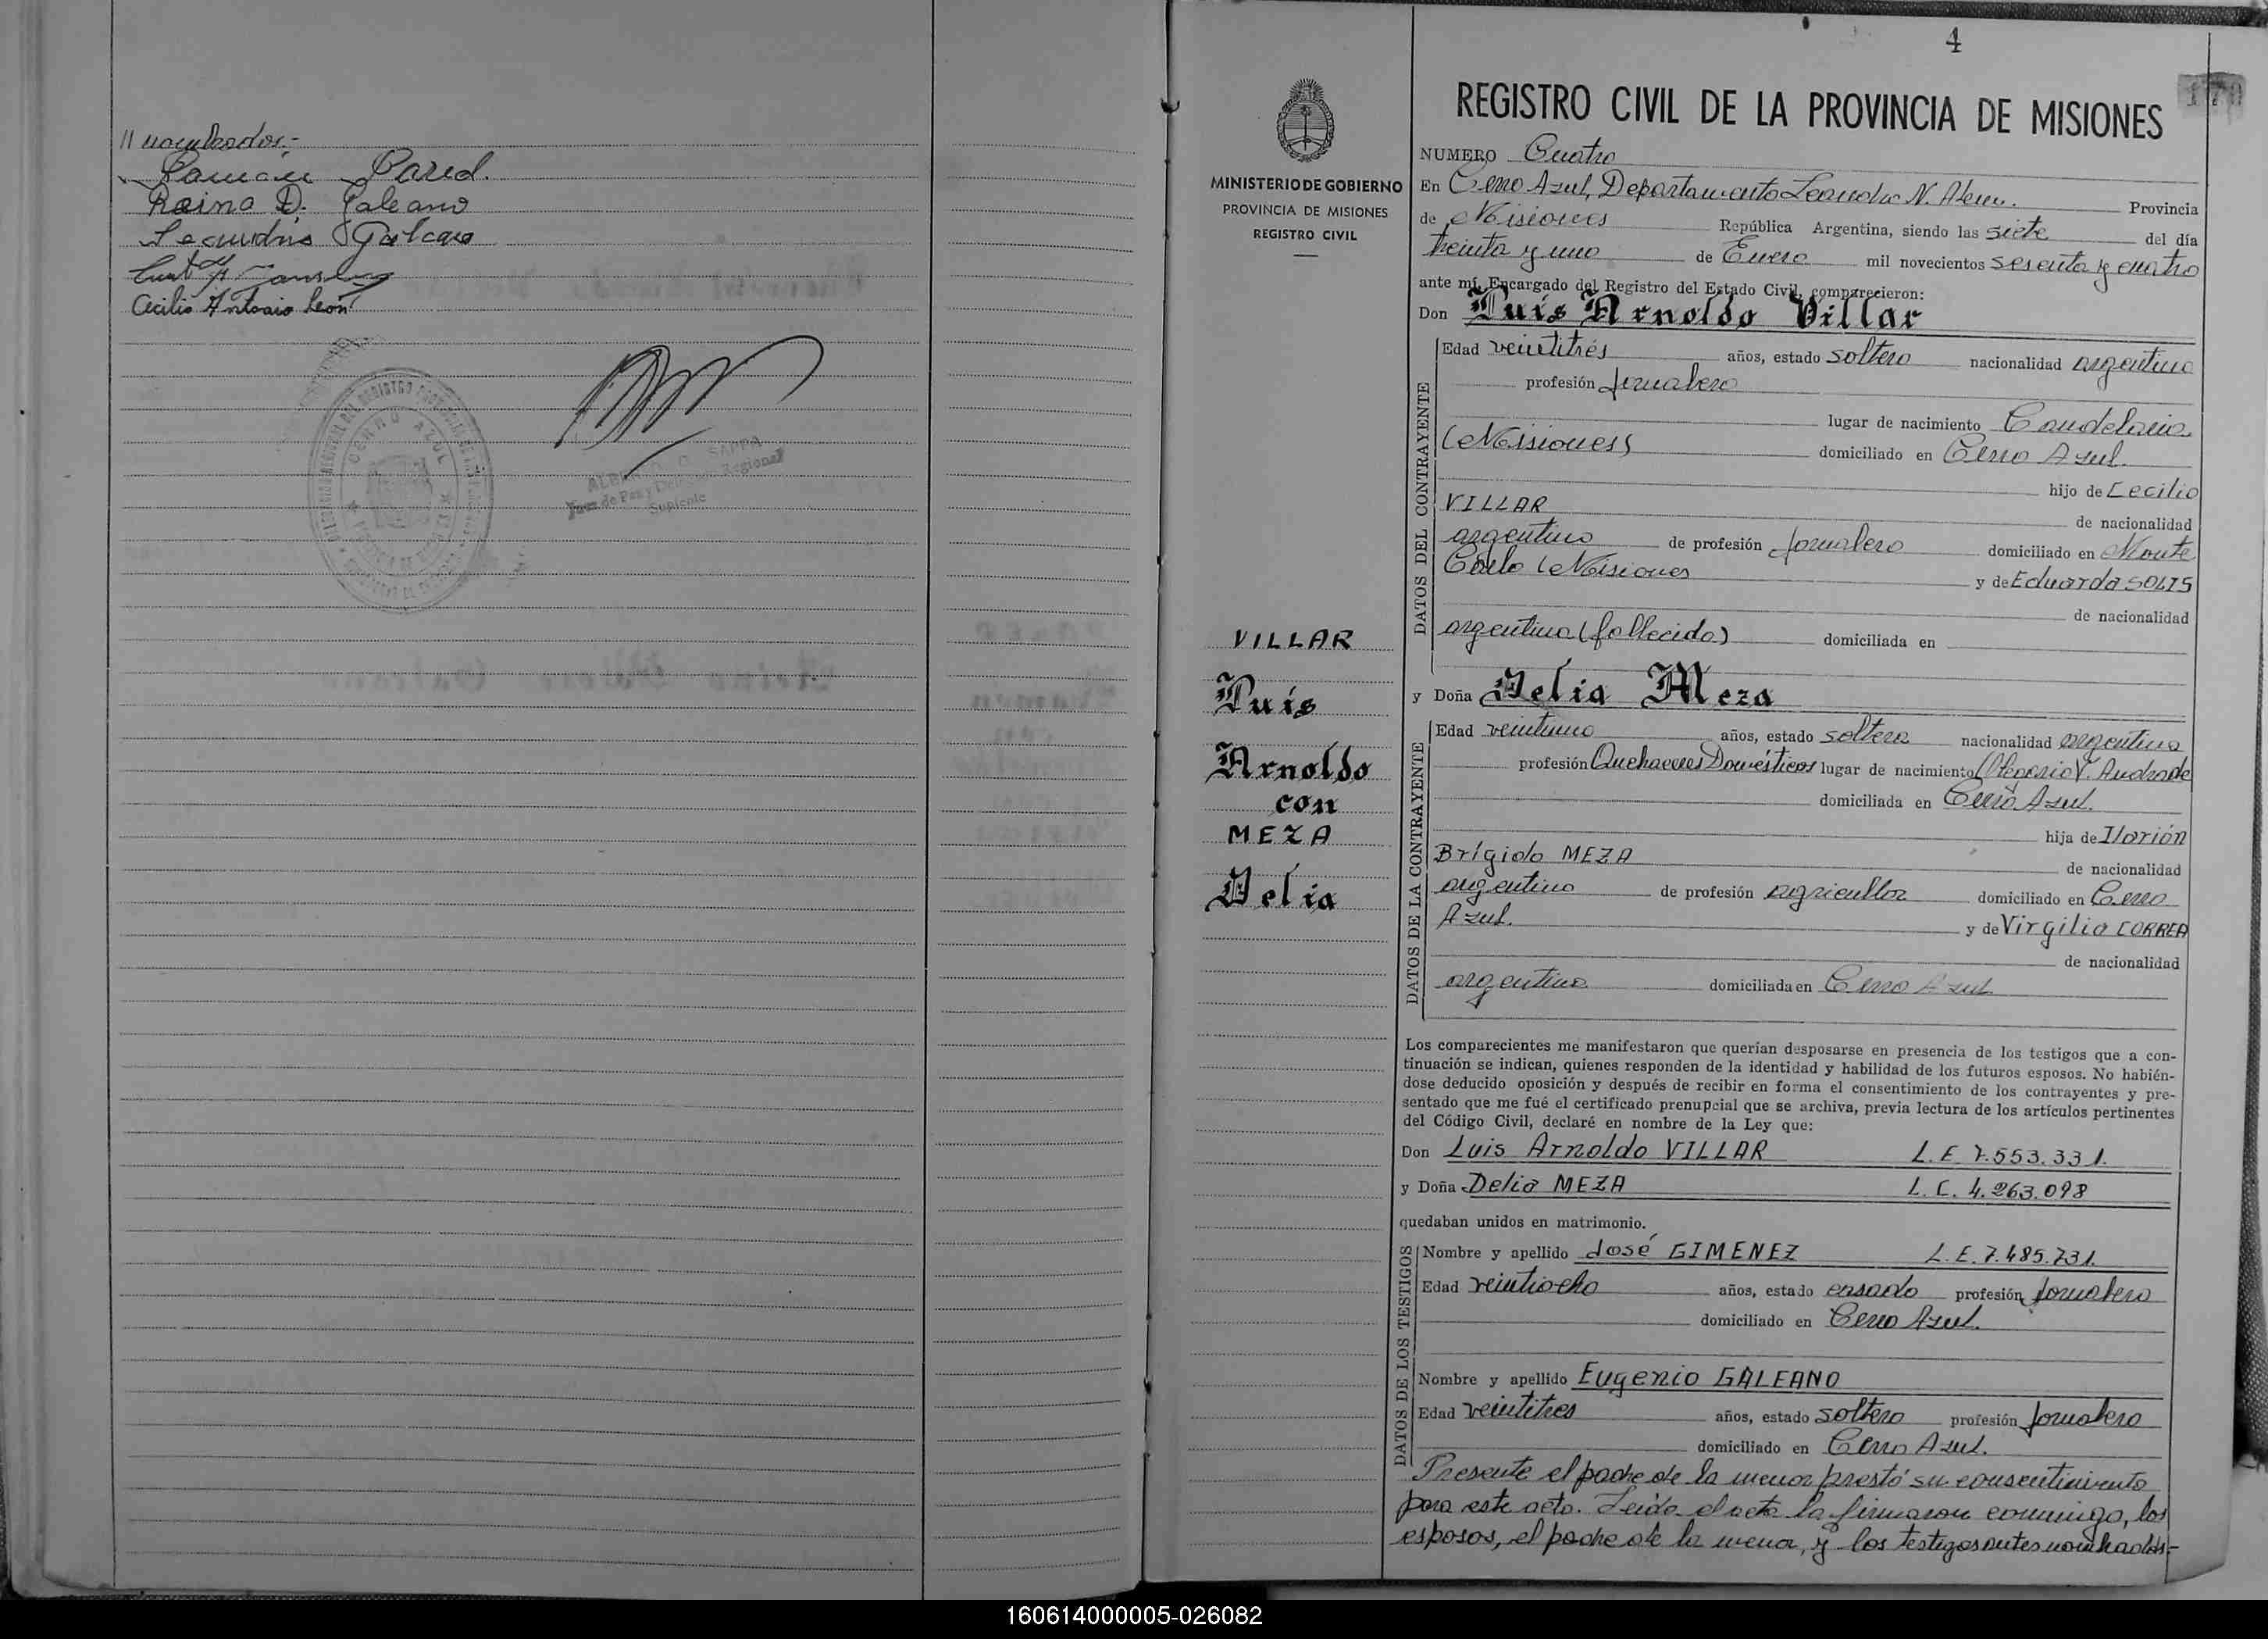 // nombrados:-
Pared.
Reina D. Galeano
Galeano
Cecilio Antonio León
CERRO AZUL
Juez de Paz y Delegado Regional
Suplente
4
170
REGISTRO CIVIL DE LA PROVINCIA DE MISIONES
MINISTERIO DE GOBIERNO
PROVINCIA DE MISIONES
REGISTRO CIVIL
NUMERO Cuatro
En Cerro Azul, Departamento Leandro N. Alem. Provincia
de Misiones República Argentina, siendo las siete del día
treinta y uno de Enero mil novecientos sesenta y cuatro
ante mí, Encargado del Registro del Estado Civil, comparecieron:
Don Luis Arnoldo Villar
DATOS DEL CONTRAYENTE
Edad veintitrés años, estado soltero nacionalidad argentina
profesión jornalero
lugar de nacimiento Candelaria
(Misiones) domiciliado en Cerro Azul.
hijo de Cecilio
VILLAR de nacionalidad
argentino de profesión jornalero domiciliado en Monte
Carlo (Misiones y de Eduarda SOLIS
de nacionalidad
argentina (fallecida) domiciliada en
y Doña Delia Meza
VILLAR
Luis
Arnoldo
con
MEZA
Delia
DATOS DE LA CONTRAYENTE
Edad veintiuno años, estado soltera nacionalidad argentina
profesión Quehaceres Domésticos lugar de nacimiento Olegario V. Andrade
domiciliada en Cerro Azul.
hija de Ilarión
Brígido MEZA de nacionalidad
argentino de profesión agricultor domiciliado en Cerro
Azul. y de Virgilia CORREA
de nacionalidad
argentina domiciliada en Cerro Azul
Los comparecientes me manifestaron que querían desposarse en presencia de los testigos que a con-
tinuación se indican, quienes responden de la identidad y habilidad de los futuros esposos. No habién-
dose deducido oposición y después de recibir en forma el consentimiento de los contrayentes y pre-
sentado que me fué el certificado prenupcial que se archiva, previa lectura de los artículos pertinentes
del Código Civil, declaré en nombre de la Ley que:
Don Luis Arnoldo VILLAR L.E 7.553.331.
y Doña Delia MEZA L.C. 4.263.098
quedaban unidos en matrimonio.
DATOS DE LOS TESTIGOS
Nombre y apellido José GIMENEZ L.E. 7.485.731.
Edad veintiocho años, estado casado profesión jornalero
domiciliado en Cerro Azul.
Nombre y apellido Eugenio GALEANO
Edad veintitres años, estado soltero profesión jornalero
domiciliado en Cerro Azul.
Presente el padre de la menor prestó su consentimiento
para este acto. Leida el acta la firmaron conmigo, los
esposos, el padre de la menor, y los testigos antes nombrados.-
160614000005-026082